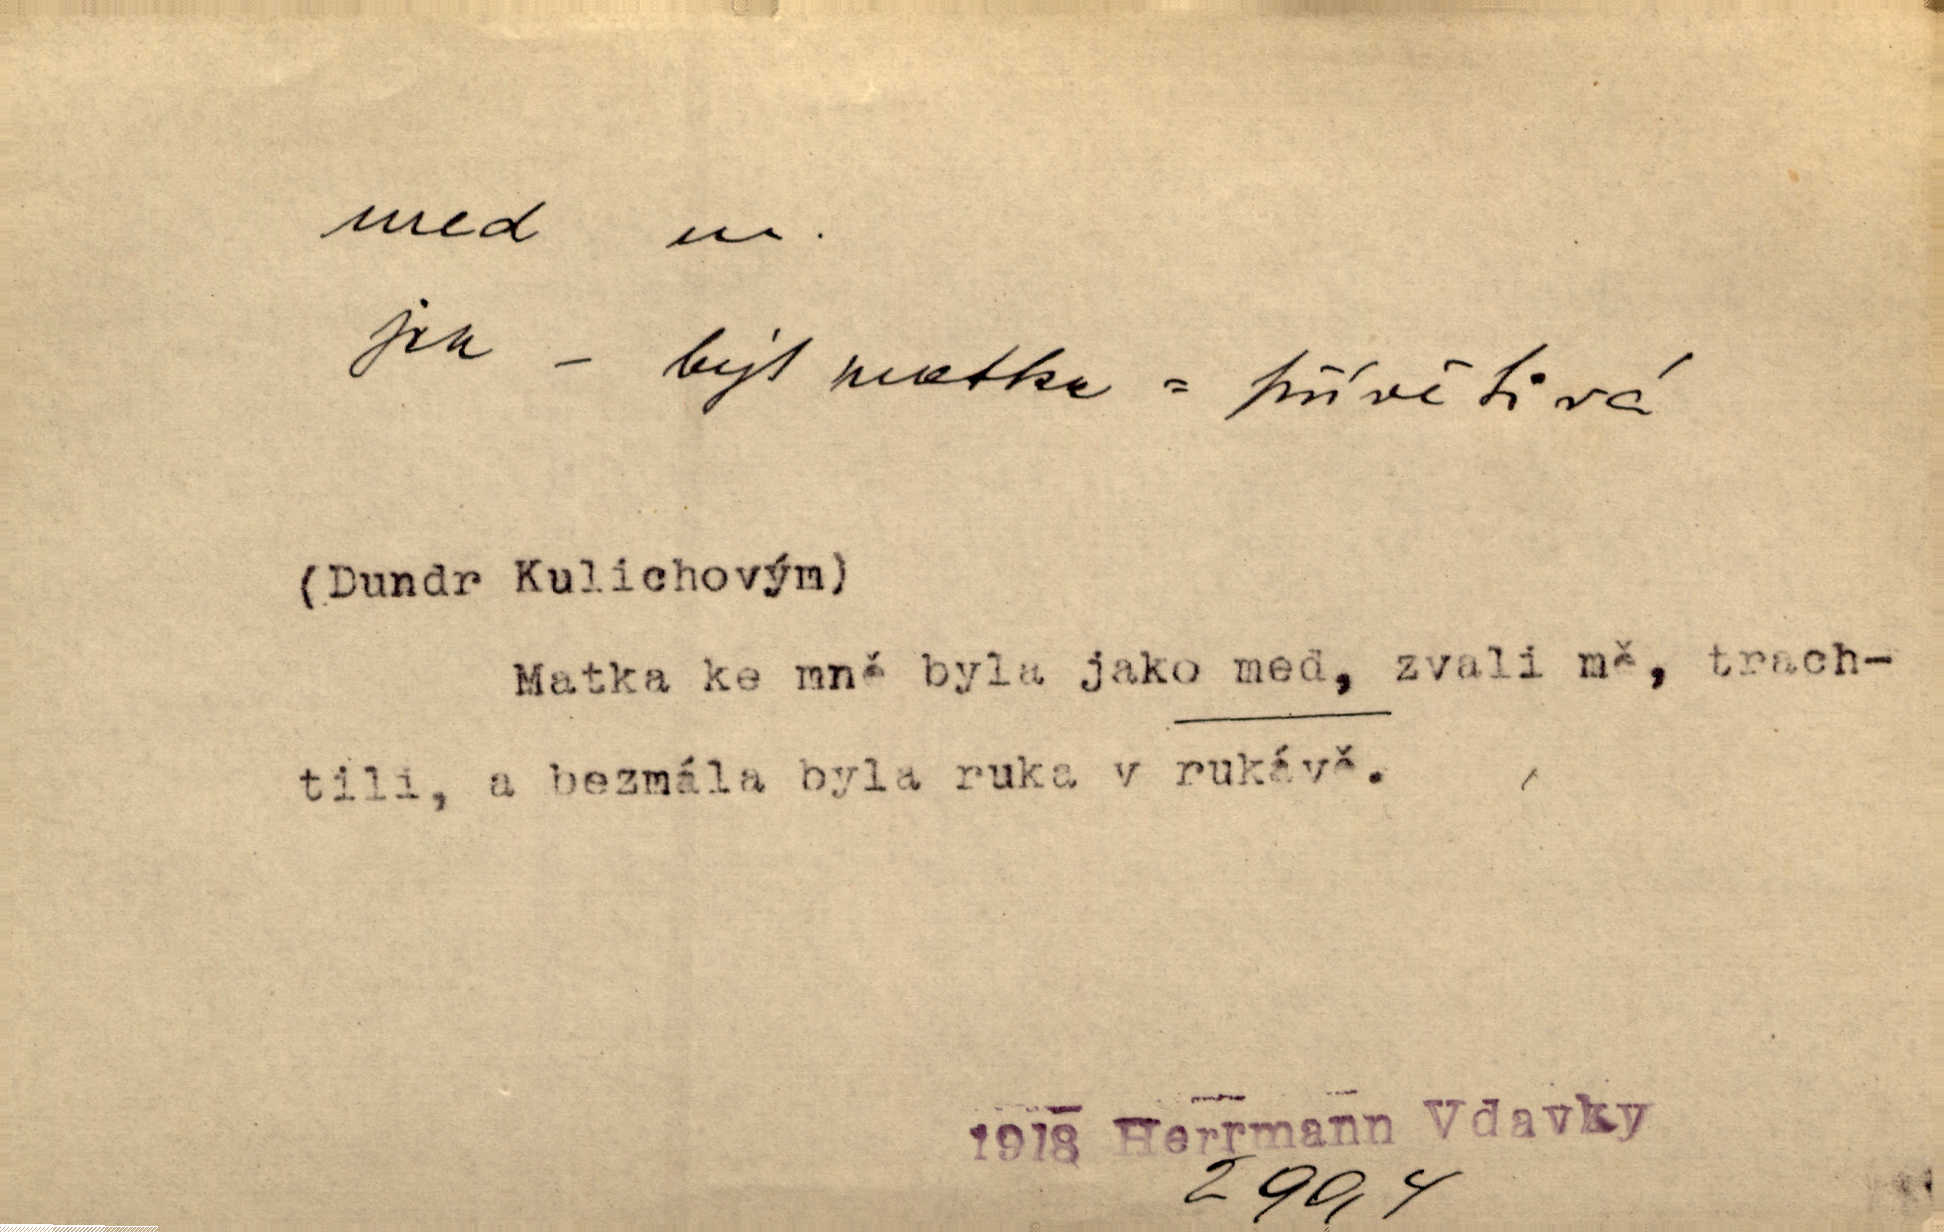 med m.
jak – být matka = přívětivá
(Dundr Kulichovým)
Matka ke mně byla jako med, zvali mě, trach-
tili, a bezmála byla ruka v rukávě.
1918 Herrmann Vdavky
299, 4